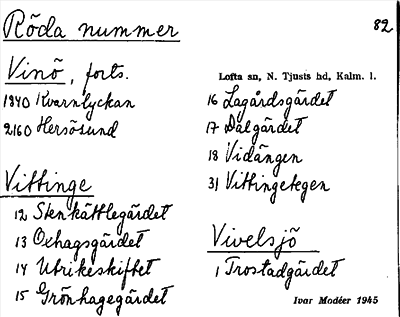 Röda nummer
82
Vinö, forts.
1840 Kvarnlyckan
2160 Hersösund
Vittinge
12 Stenkättlegärdet
13 Oxhagsgärdet
14 Utrikeskiftet
15 Grönhagegärdet
Lofta sn, N. Tjusts hd, Kalm. l.
16 Lagårdsgärdet
17 Dalgärdet
18 Vidängen
31 Vittingetegen
Vivelsjö
1 Trostadgärdet
Ivar Modéer 1945